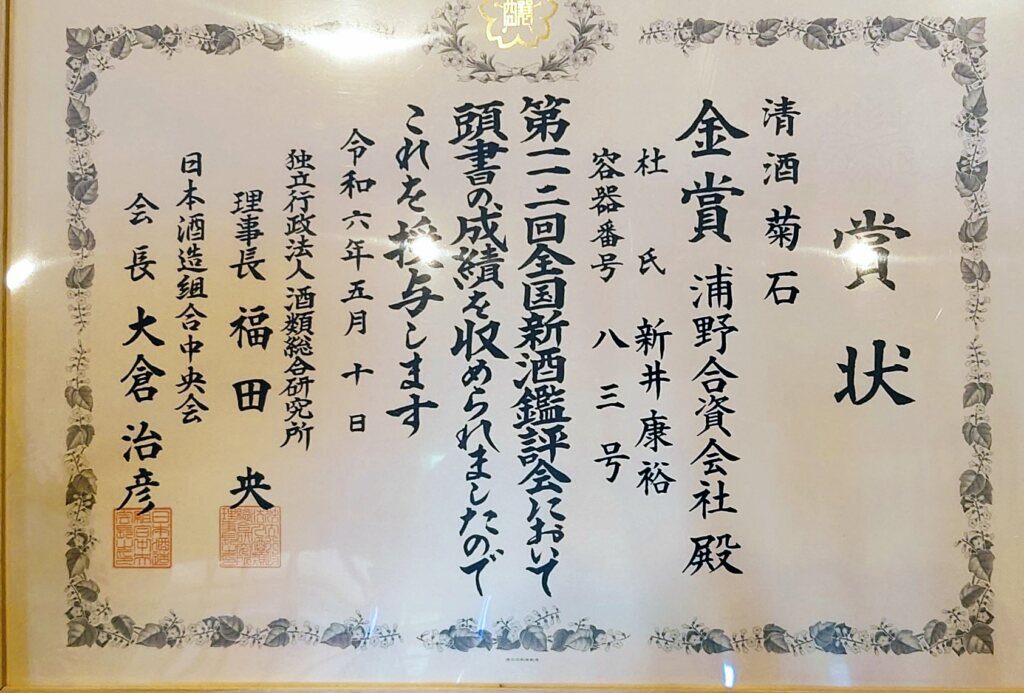 賞状
清酒 菊石
金賞 浦野合資会社 殿
杜氏 新井康裕
容器番号 八三号
第一一二回全国新酒鑑評会において
頭書の成績を収められましたので
これを授与します
令和六年五月十日
独立行政法人 酒類総合研究所
理事長 福田 央
日本酒造組合中央会
会長 大倉治彦